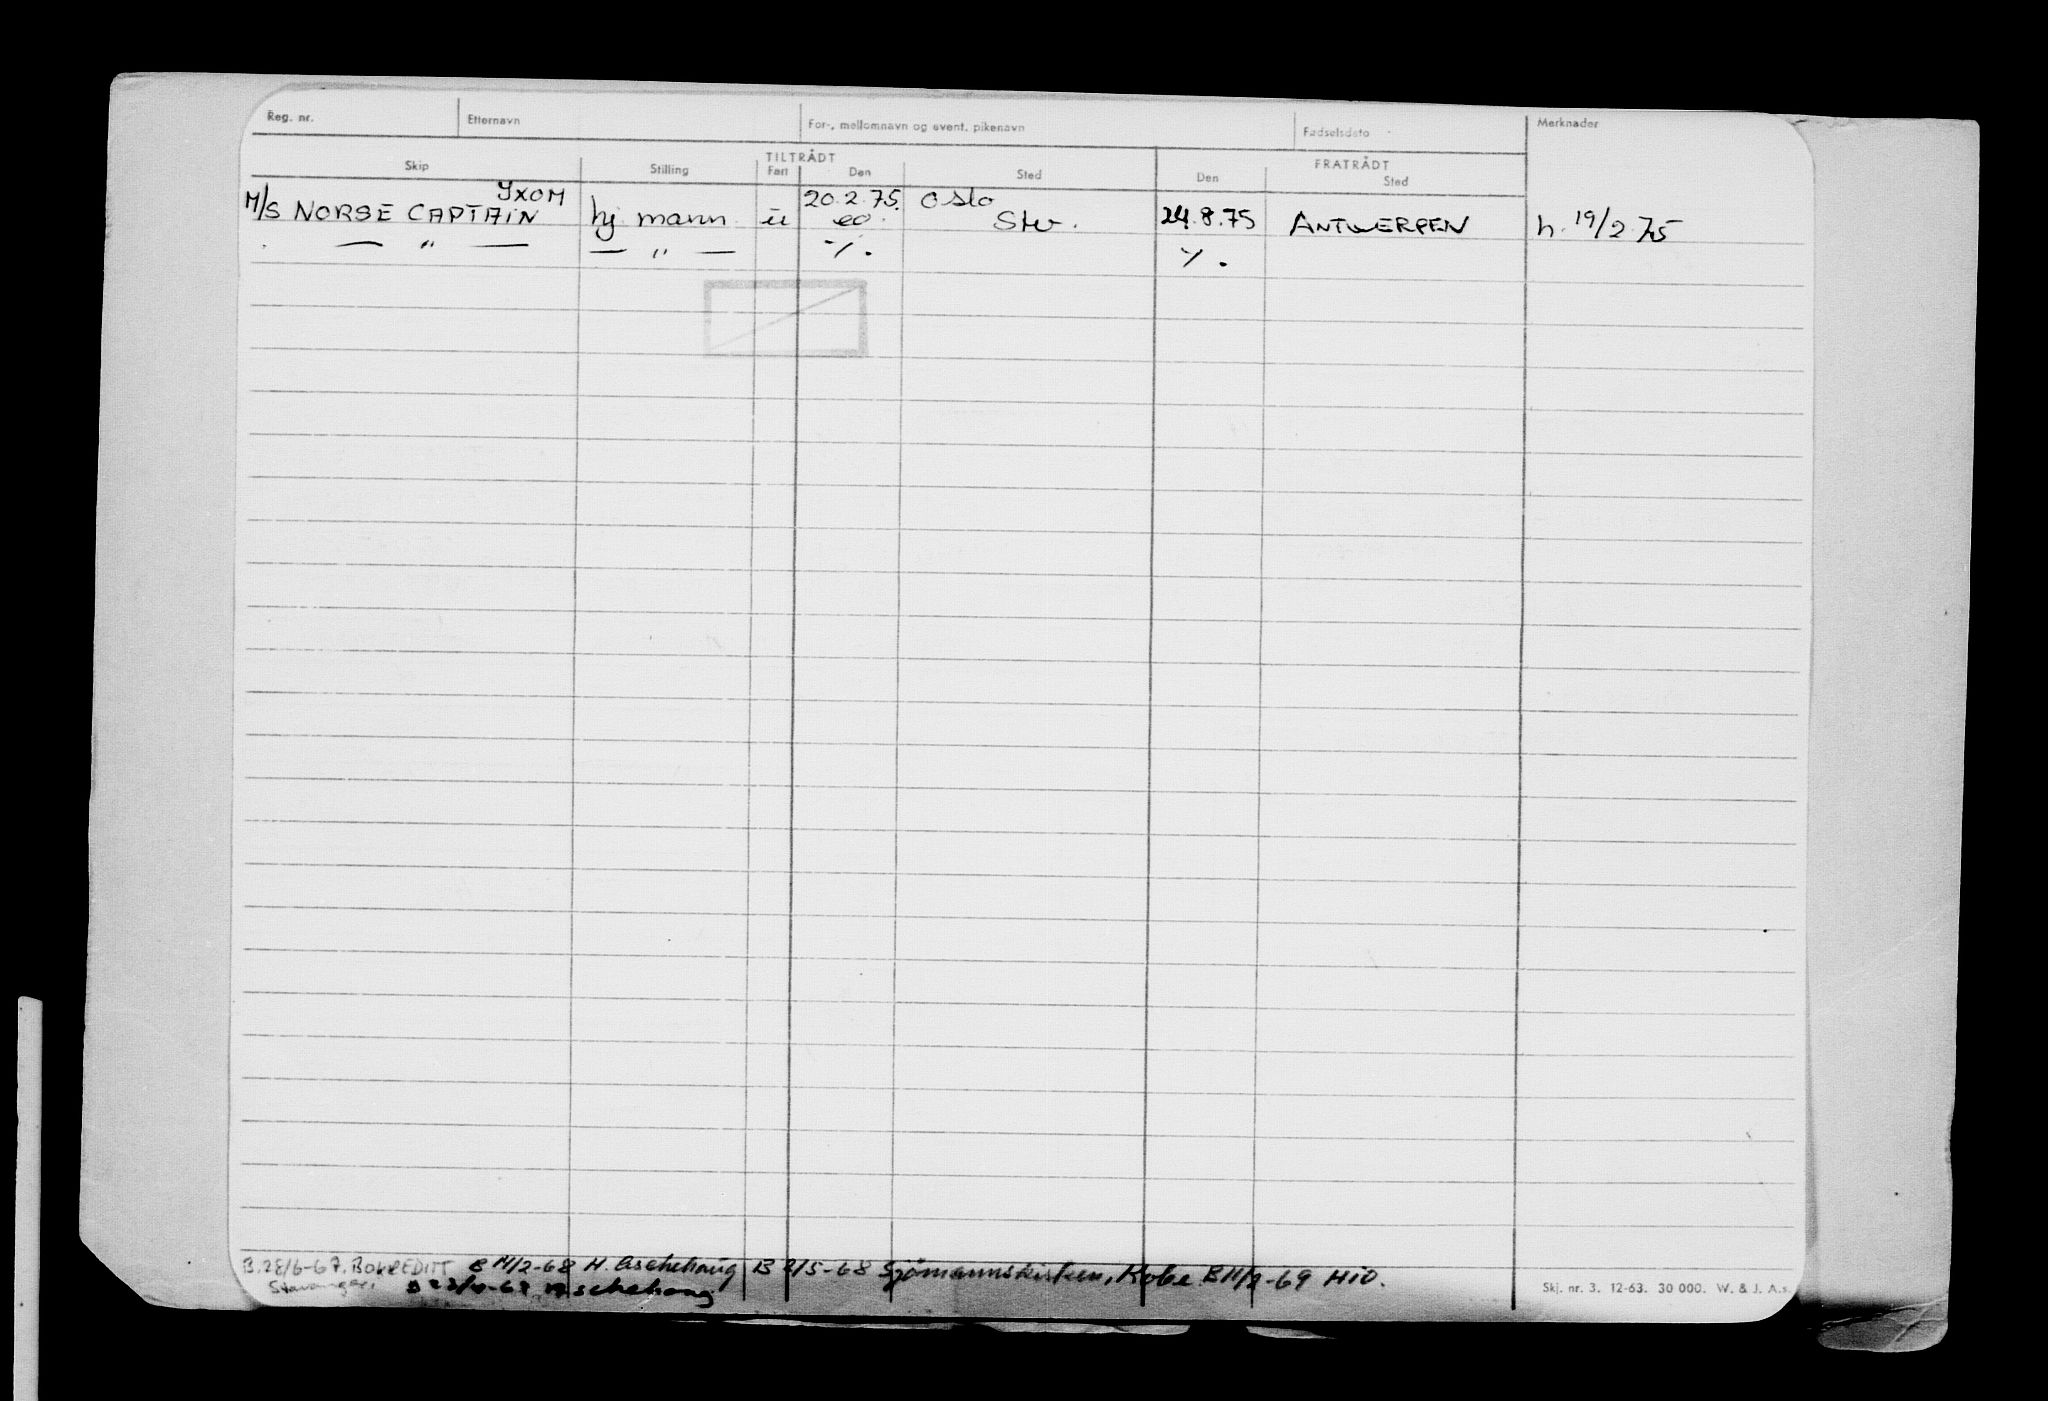 Reg. nr. Etternavn For-, mellomnavn og event. pikenavn Fødselsdato Merknader
TILTRÅDT FRATRÅDT
Skip Stilling Fart Den Sted Den Sted
YXOM 20.2.75. Oslo
M/S NORSE CAPTAIN hj. mann u 24.8.75 ANTWERPEN h. 19/2 75
— " — — " — ·/. ·/.
B.28/6-67. BOKREDITT B 14/2-68 H. Aschehoug B 2/5-68 Sjømannskirken, Kobe B 11/2-69 HiO.
Stavanger. Aschehoug
Skj. nr. 3. 12-63. 30 000. W. & J. A.s.